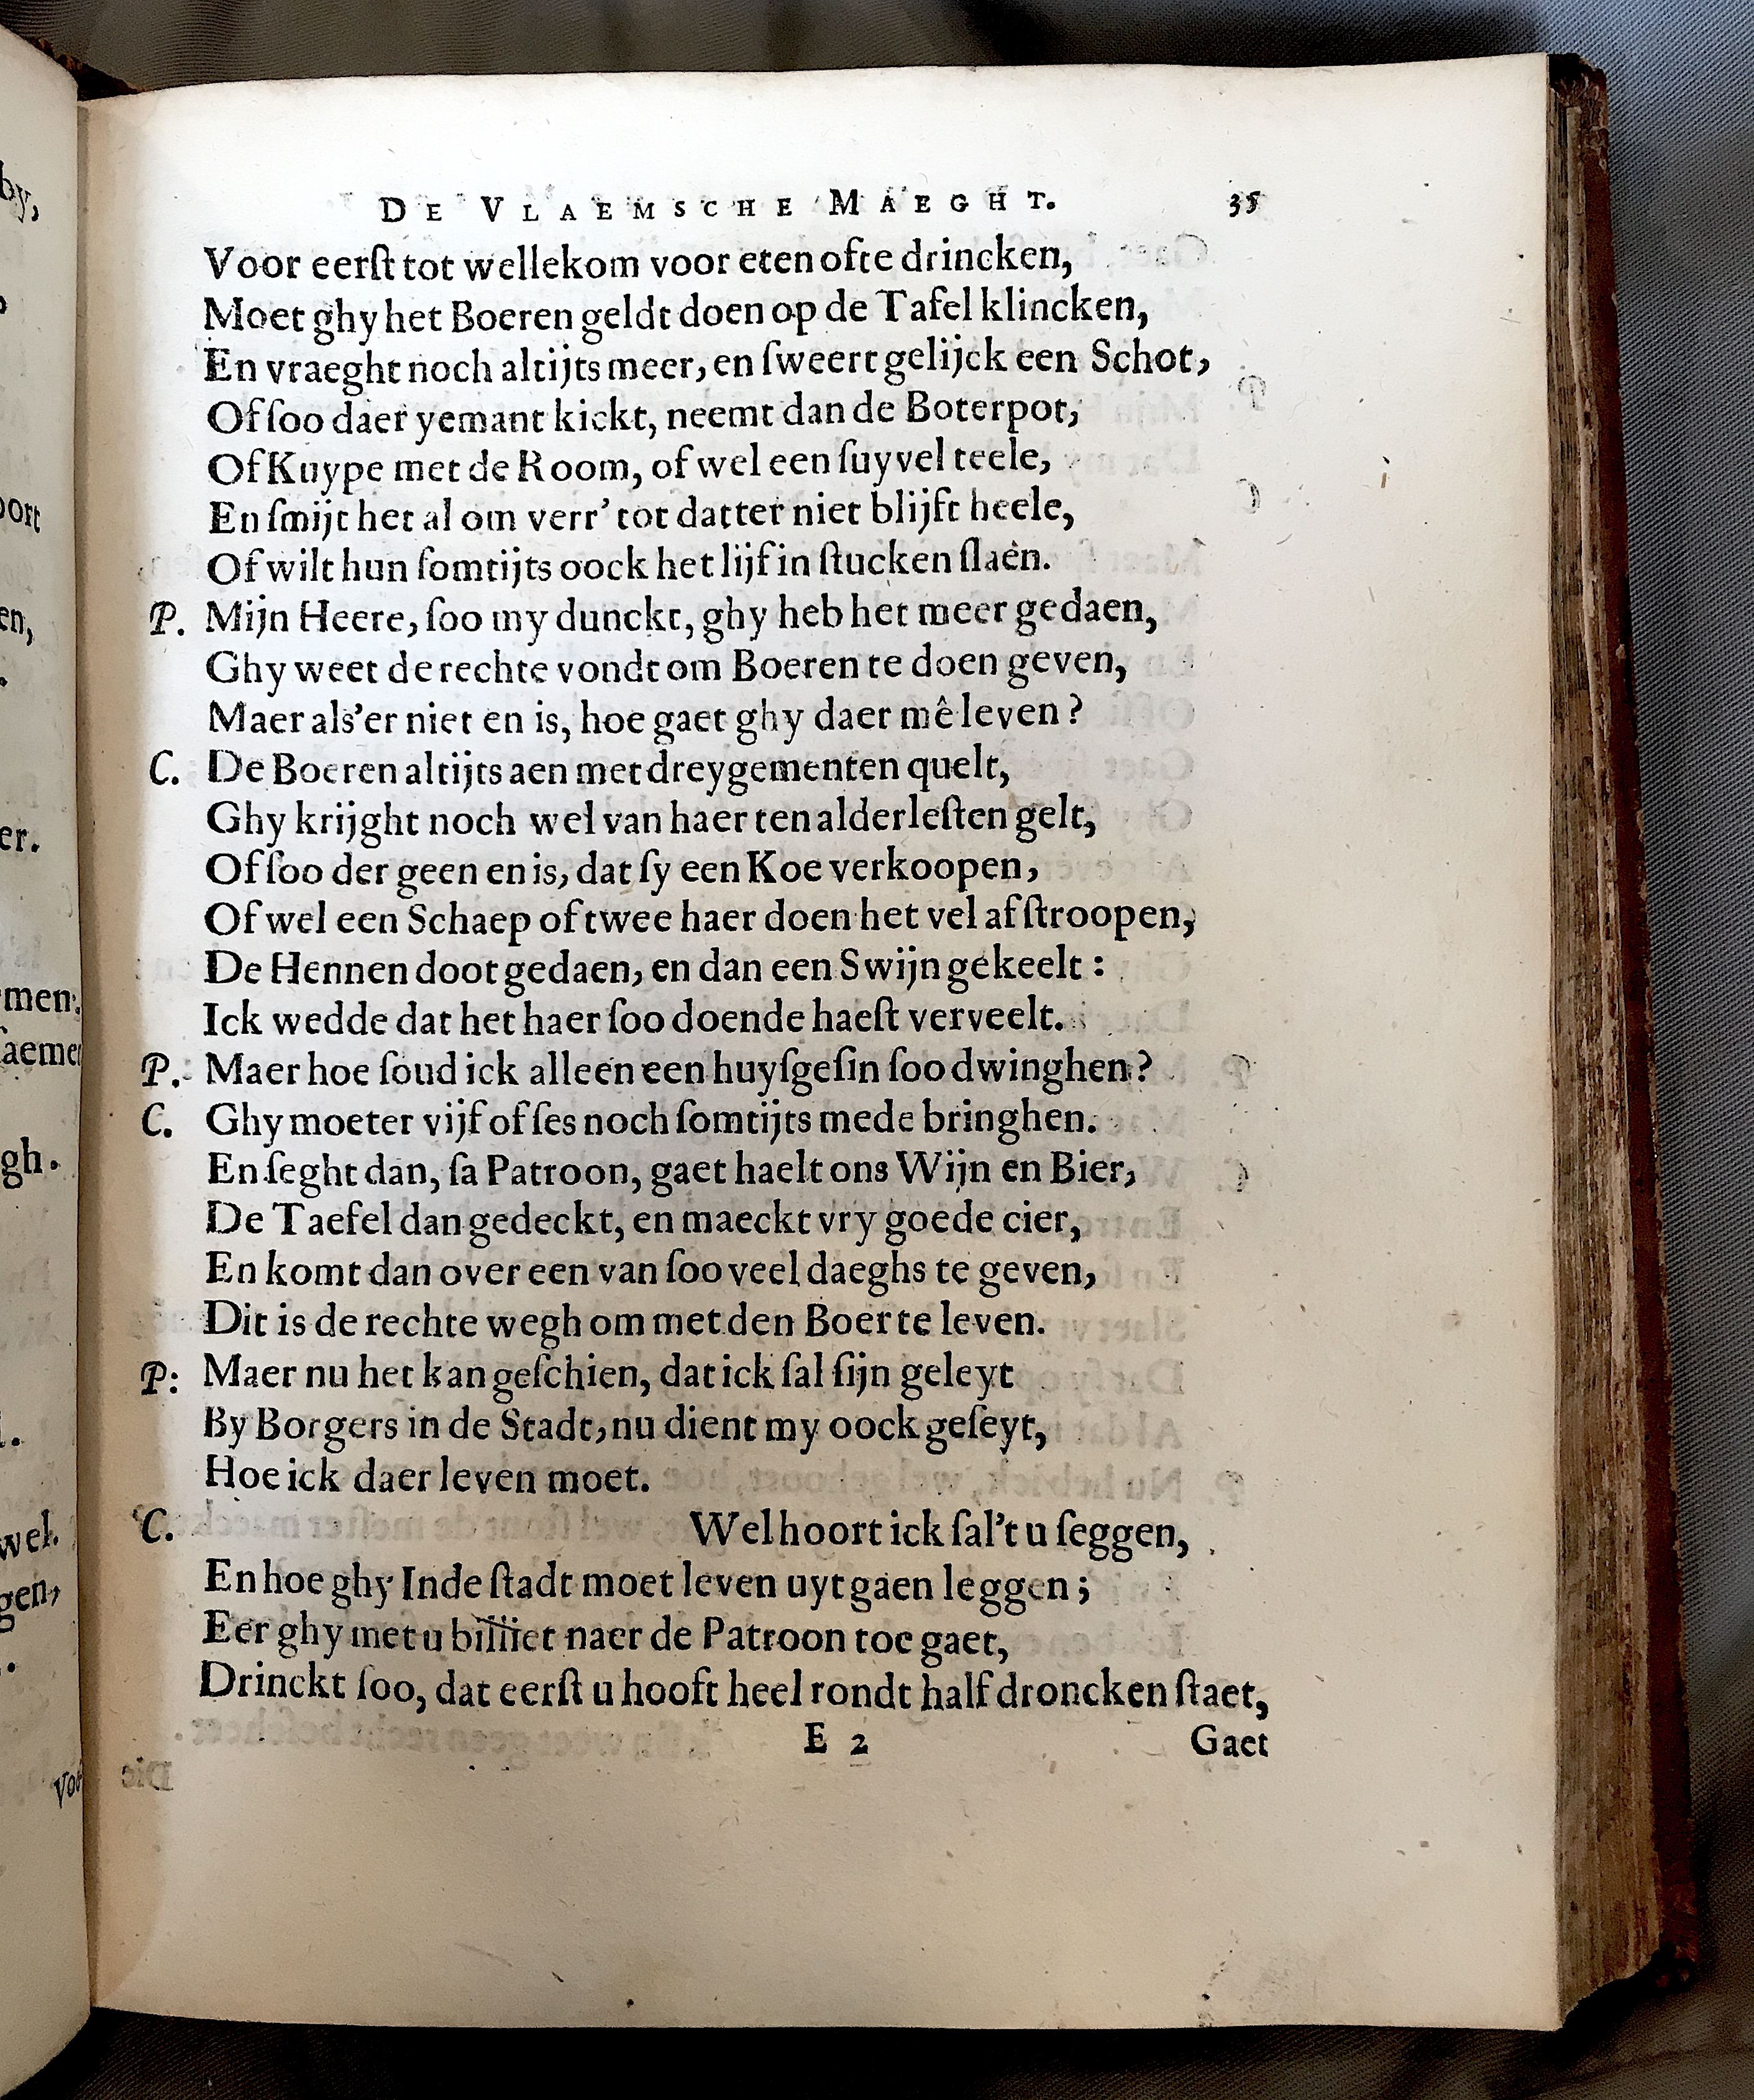 DE VLAEMSCHE MAEGHT. 35
Voor eerſt tot wellekom voor eten ofte drincken,
Moet ghy het Boeren geldt doen op de Tafel klincken,
En vraeght noch altijts meer, en ſweert gelijck een Schot,
Of ſoo daer yemant kickt, neemt dan de Boterpot,
Of Kuype met de Room, of wel een ſuyvel teele,
En ſmijt het al om verr' tot datter niet blijft heele,
Of wilt hun ſomtijts oock het lijf in ſtucken ſlaen.
P. Mijn Heere, ſoo my dunckt, ghy heb het meer gedaen,
Ghy weet de rechte vondt om Boeren te doen geven,
Maer als'er niet en is, hoe gaet ghy daer mê leven?
C. De Boeren altijts aen met dreygementen quelt,
Ghy krijght noch wel van haer ten alderleſten gelt,
Of ſoo der geen en is, dat ſy een Koe verkoopen,
Of wel een Schaep of twee haer doen het vel af ſtroopen,
De Hennen doot gedaen, en dan een Swijn gekeelt:
Ick wedde dat het haer ſoo doende haeſt verveelt.
P. Maer hoe ſoud ick alleen een huyſgeſin ſoo dwinghen?
C. Ghy moeter vijf of ſes noch ſomtijts mede bringhen.
En ſeght dan, ſa Patroon, gaet haelt ons Wijn en Bier,
De Taefel dan gedeckt, en maeckt vry goede cier,
En komt dan over een van ſoo veel daeghs te geven,
Dit is de rechte wegh om met den Boer te leven.
P: Maer nu het kan geſchien, dat ick ſal ſijn geleyt
By Borgers in de Stadt, nu dient my oock geſeyt,
Hoe ick daer leven moet.
C. Wel hoort ick ſal't u ſeggen,
En hoe ghy Inde ſtadt moet leven uyt gaen leggen;
Eer ghy met u billiet naer de Patroon toe gaet,
Drinckt ſoo, dat eerſt u hooft heel rondt half droncken ſtaet,
E 2 Gaet